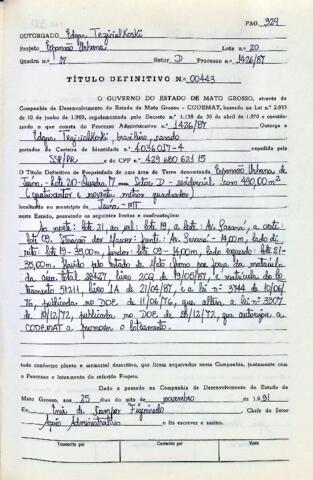 PÁG. 329
OUTORGADO Edgar Tezirialkoski
Projeto Expansão Urbana Lote n.º 20
Quadra n.º 17 Setor D Processo n.º 1426/87
TÍTULO DEFINITIVO N.º 00443
O GOVERNO DO ESTADO DE MATO GROSSO, através da
Companhia de Desenvolvimento do Estado de Mato Grosso - CODEMAT, baseado na Lei n.º 2.933
de 10 de junho de 1969, regulamentada pelo Decreto n.º 1.138 de 30 de abril de 1970 e considerando o
que consta do Processo Administrativo n.º 1426/87 Outorga a
Edgar Tezirialkoski, brasileiro, casado
portador da Carteira de Identidade n.º 4036017-4 expedida pela
SSP/PR e do CPF n.º 429 680 621 15
O Título Definitivo de Propriedade de uma área de Terra denominada Expansão Urbana de
Juína - Lote 20 - Quadra 17 - Setor D - residencial, com 490,00m²
(quatrocentos e noventa metros quadrados)
localizada no município de Juína - MT
neste Estado, possuindo os seguintes limites e confrontações:
ao norte: lote 21, ao sul: lote 19, a leste: Av. Paraná, a oeste:
lote 09. Frente: Av. Paraná - 14,00m, lado di-
reito: lote 19 - 35,00m, fundos: lote 09 - 14,00m, lado esquerdo: lote 21 -
35,00m. Estado de Mato Grosso por força da matrícula
da área total 28427 livro 2CQ de 19/05/87, e matrícula do lo
teamento 51211, livro 1A de 21/04/87 e a lei n.º 3744 de 10/06/
76, publicada no DOE de 11/06/76, que altera a lei n.º 3307
de 19/12/72, publicada no DOE de 28/12/72, que autoriza a
CODEMAT a promover o loteamento.
tudo conforme planta e memorial descritivo, que ficam arquivados nesta Companhia, juntamente com
o Processo e loteamento do referido Projeto.
Dado e passado na Companhia de Desenvolvimento do Estado de
Mato Grosso, aos 25 dias do mês de novembro de 1.991
Eu, de Campos Figueiredo Chefe do Setor
Apoio Administrativo o fiz escrever e assino.
Transcrito por Conferido por Visto